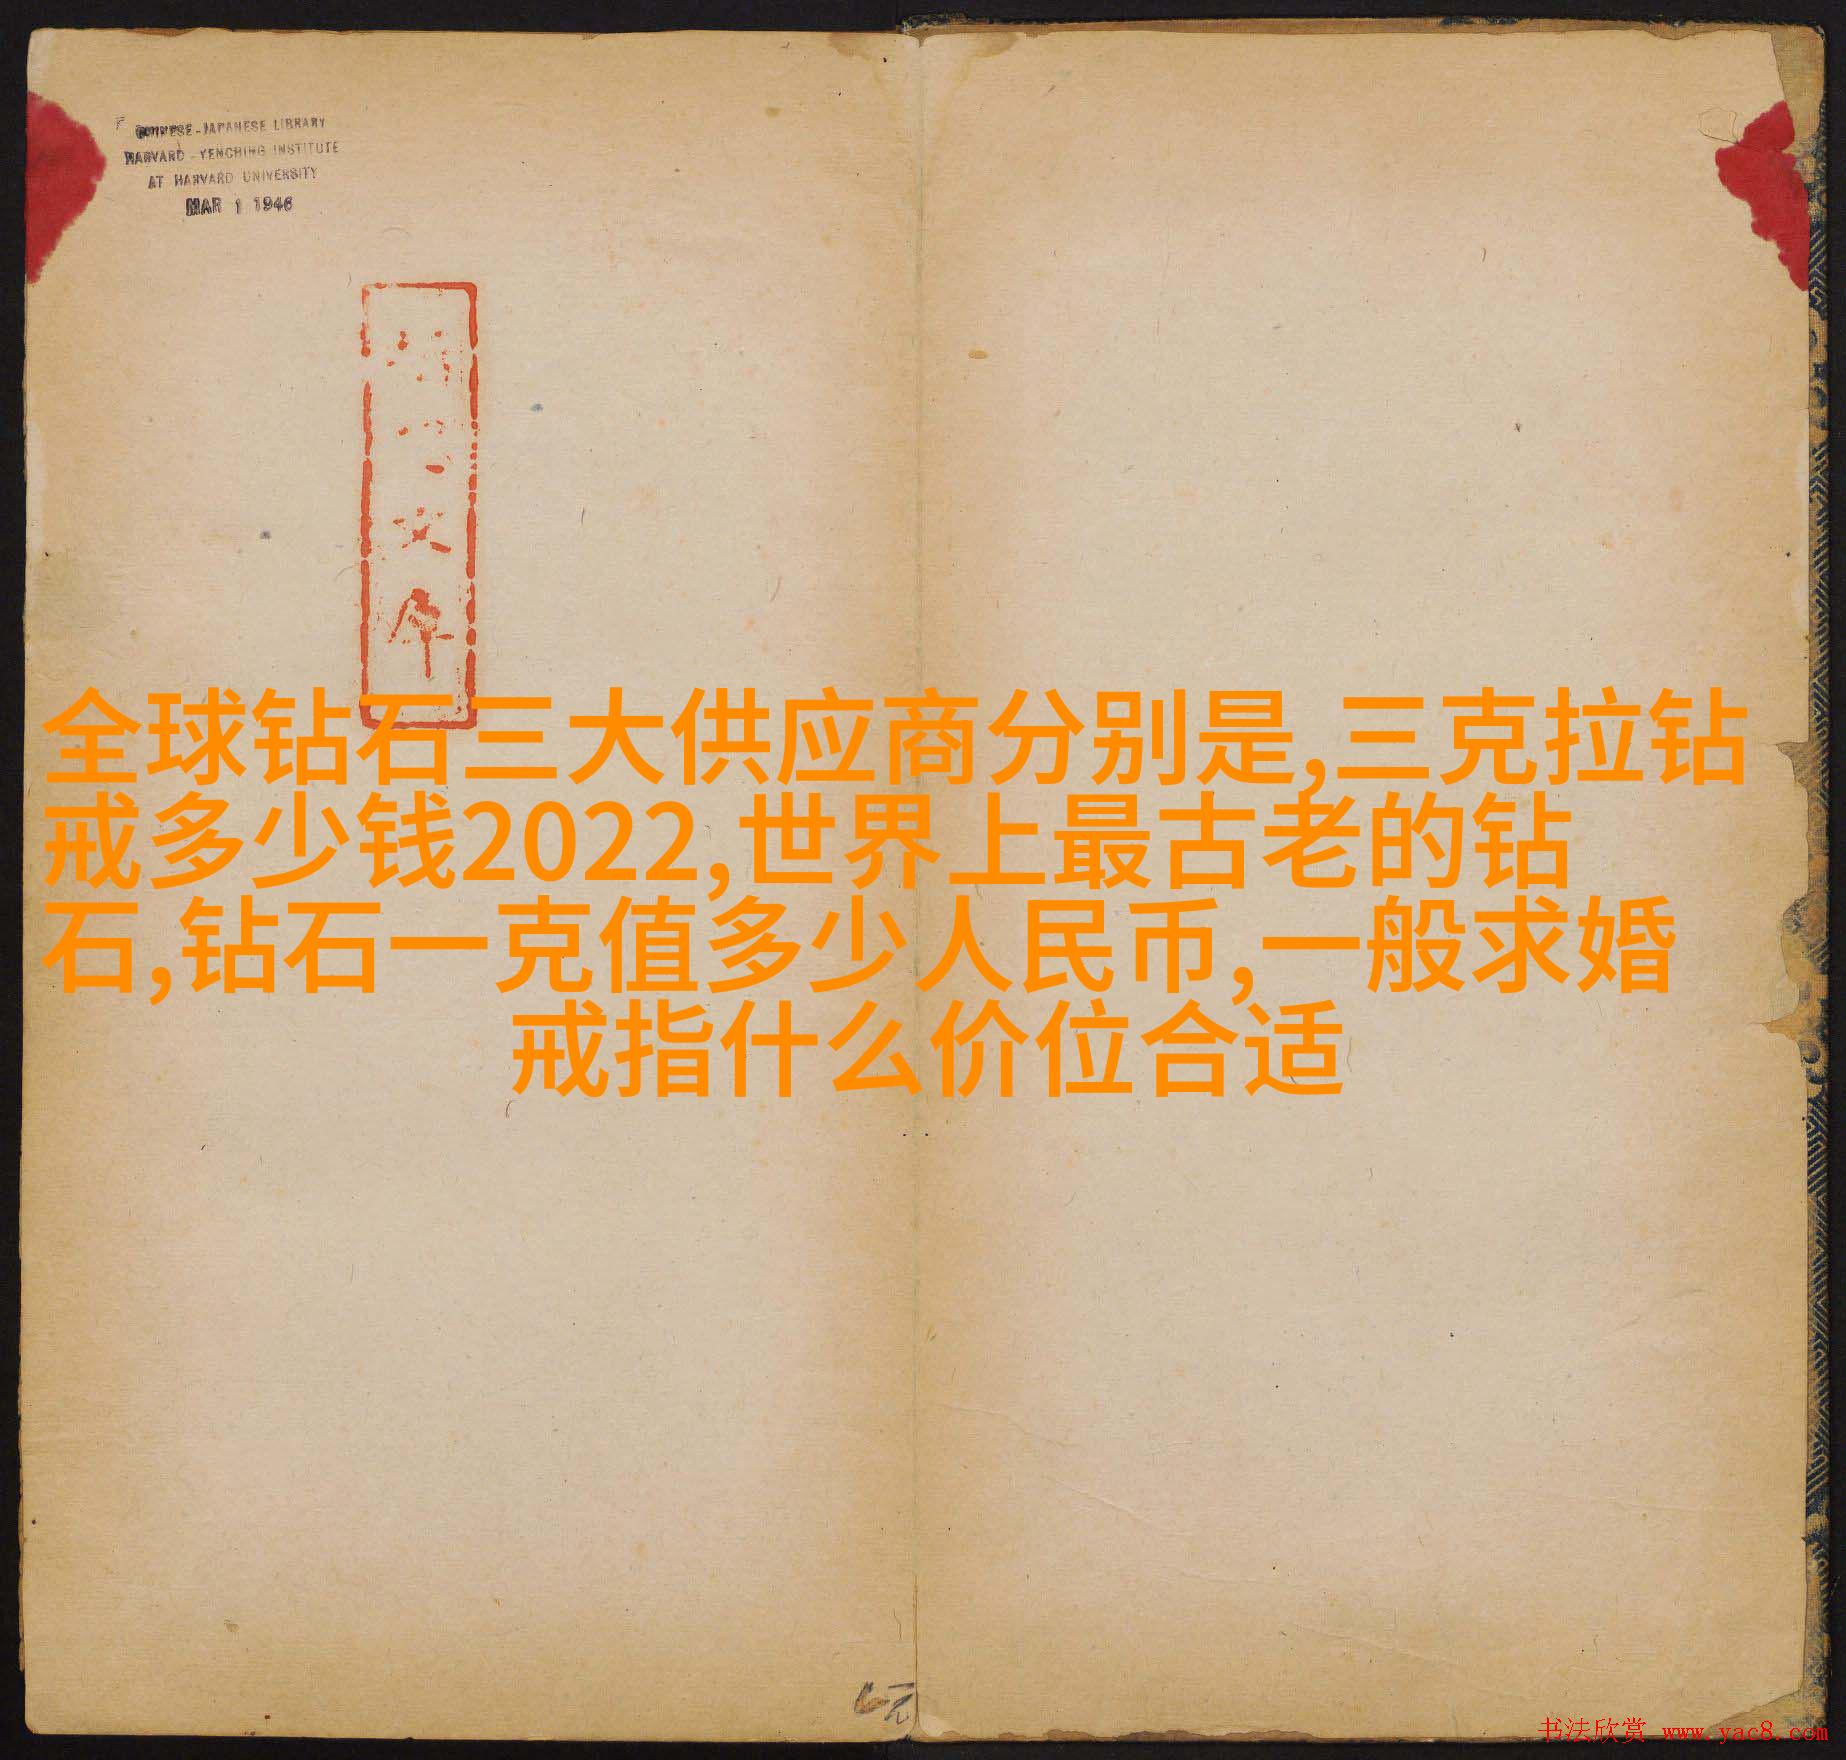 CHINESE-JAPANESE LIBRARY
HARVARD-YENCHING INSTITUTE
AT HARVARD UNIVERSITY
MAR 1 1946
全球钻石三大供应商分别是,三克拉钻
戒多少钱2022,世界上最古老的钻
石,钻石一克值多少人民币,一般求婚
戒指什么价位合适
元
书法欣赏 www.yac8.com